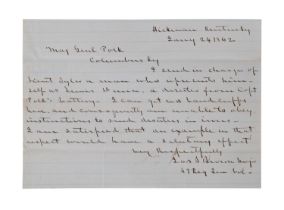 Hickman Kentucky
Jany 24 1862
Maj Genl Polk
Columbus Ky
I send in charge of
a man who represents him-
self as Lewis a deserter from Capt
Polk's battery. I can get no hand cuffs
here, and consequently am unable to obey
instructions to send deserters in irons.
I am satisfied that an example in that
respect would have a salutary effect
Very Respectfully
Reg Ten Vol.